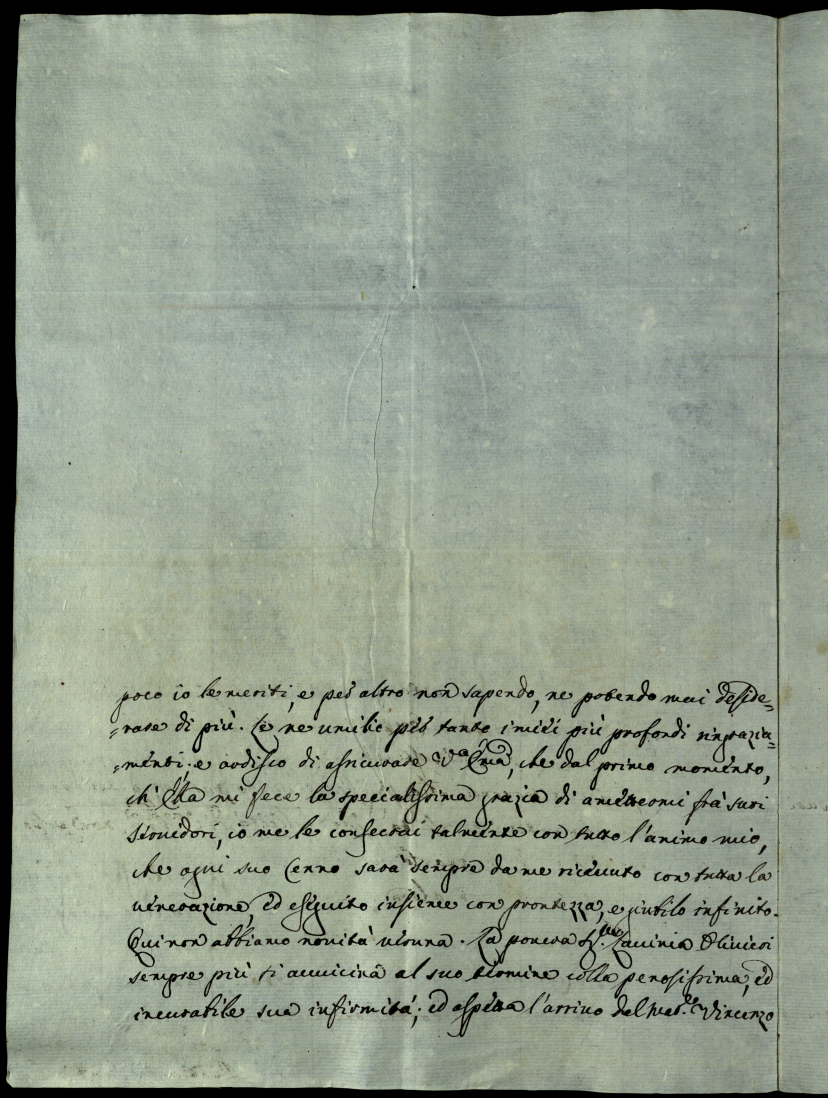 poco io le meriti, e per altro non sapendo, ne potendo mai deside=
=rare di più. Ce ne umilio per tanto i miei più profondi ringrazia=
=menti. e ardisco di assicurare V.ª Em̃a, che dal primo momento,
ch' Ella mi fece la specialissima grazia di ammettermi frà suoi
Servidori, io me le consecrai talmente con tutto l'animo mio,
che ogni suo Cenno sarà sempre da me ricevuto con tutta la
venerazione, ed eseguito insieme con prontezza, e giubilo infinito.
Qui non abbiamo novità veruna. La povera Sig.ra Lavinia Olivieri
sempre più si avvicina al suo termine colla penosissima, ed
incurabile sua infirmità; ed aspetta l'arrivo del Vincenzo